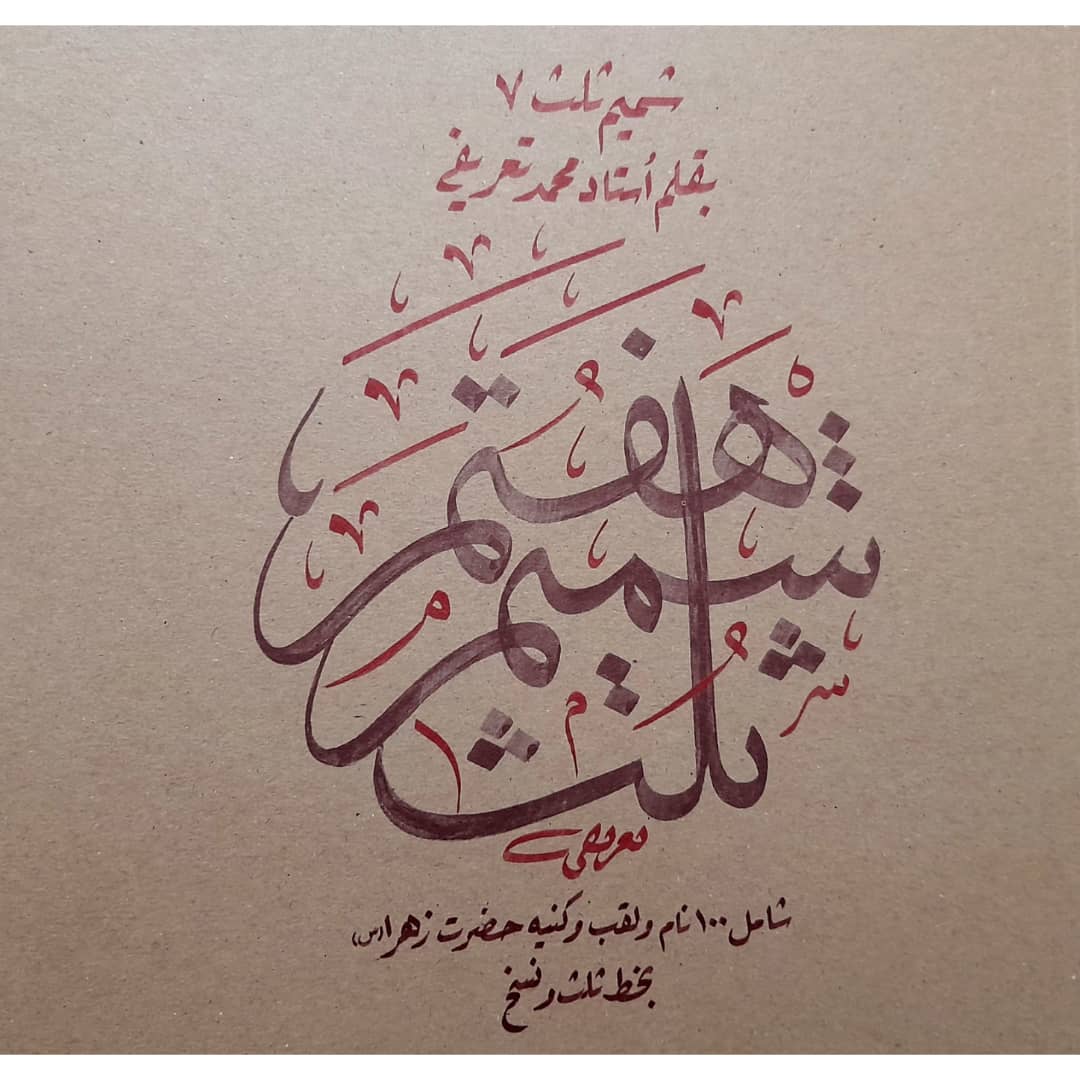 شمیم ثلث ۷
بقلم أستاد محمد تعریفی
هفتم
شمیم
ثُلث
تعریفی
شامل ۱۰۰ نام و لقب و کنیه حضرت زهرا(س)
بخط ثلث و نسخ